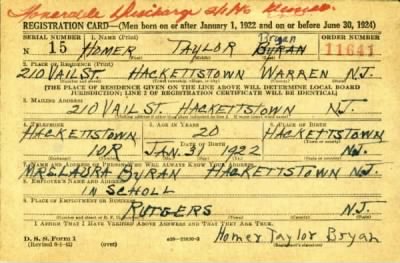 REGISTRATION CARD—(Men born on or after January 1, 1922 and on or before June 30, 1924)
SERIAL NUMBER 1. NAME (Print) Bryan ORDER NUMBER
N 15 HOMER TAYLOR BYRAN 11641
(First) (Middle) (Last)
2. PLACE OF RESIDENCE (Print)
210 VAIL ST. HACKETTSTOWN WARREN N.J.
[THE PLACE OF RESIDENCE GIVEN ON THE LINE ABOVE WILL DETERMINE LOCAL BOARD
JURISDICTION; LINE 2 OF REGISTRATION CERTIFICATE WILL BE IDENTICAL]
3. MAILING ADDRESS
210 VAIL ST. HACKETTSTOWN N.J.
4. TELEPHONE 5. AGE IN YEARS 6. PLACE OF BIRTH
HACKETTSTOWN 20 HACKETTSTOWN
DATE OF BIRTH
10R JAN. 31 1922 N.J.
7. NAME AND ADDRESS OF PERSON WHO WILL ALWAYS KNOW YOUR ADDRESS
MRS LAURA BYRAN HACKETTSTOWN N.J.
8. EMPLOYER'S NAME AND ADDRESS
IN SCHOLL
RUTGERS N.J.
I AFFIRM THAT I HAVE VERIFIED ABOVE ANSWERS AND THAT THEY ARE TRUE.
D. S. S. Form 1
(Revised 6-1-42) (over)
Homer Taylor Bryan